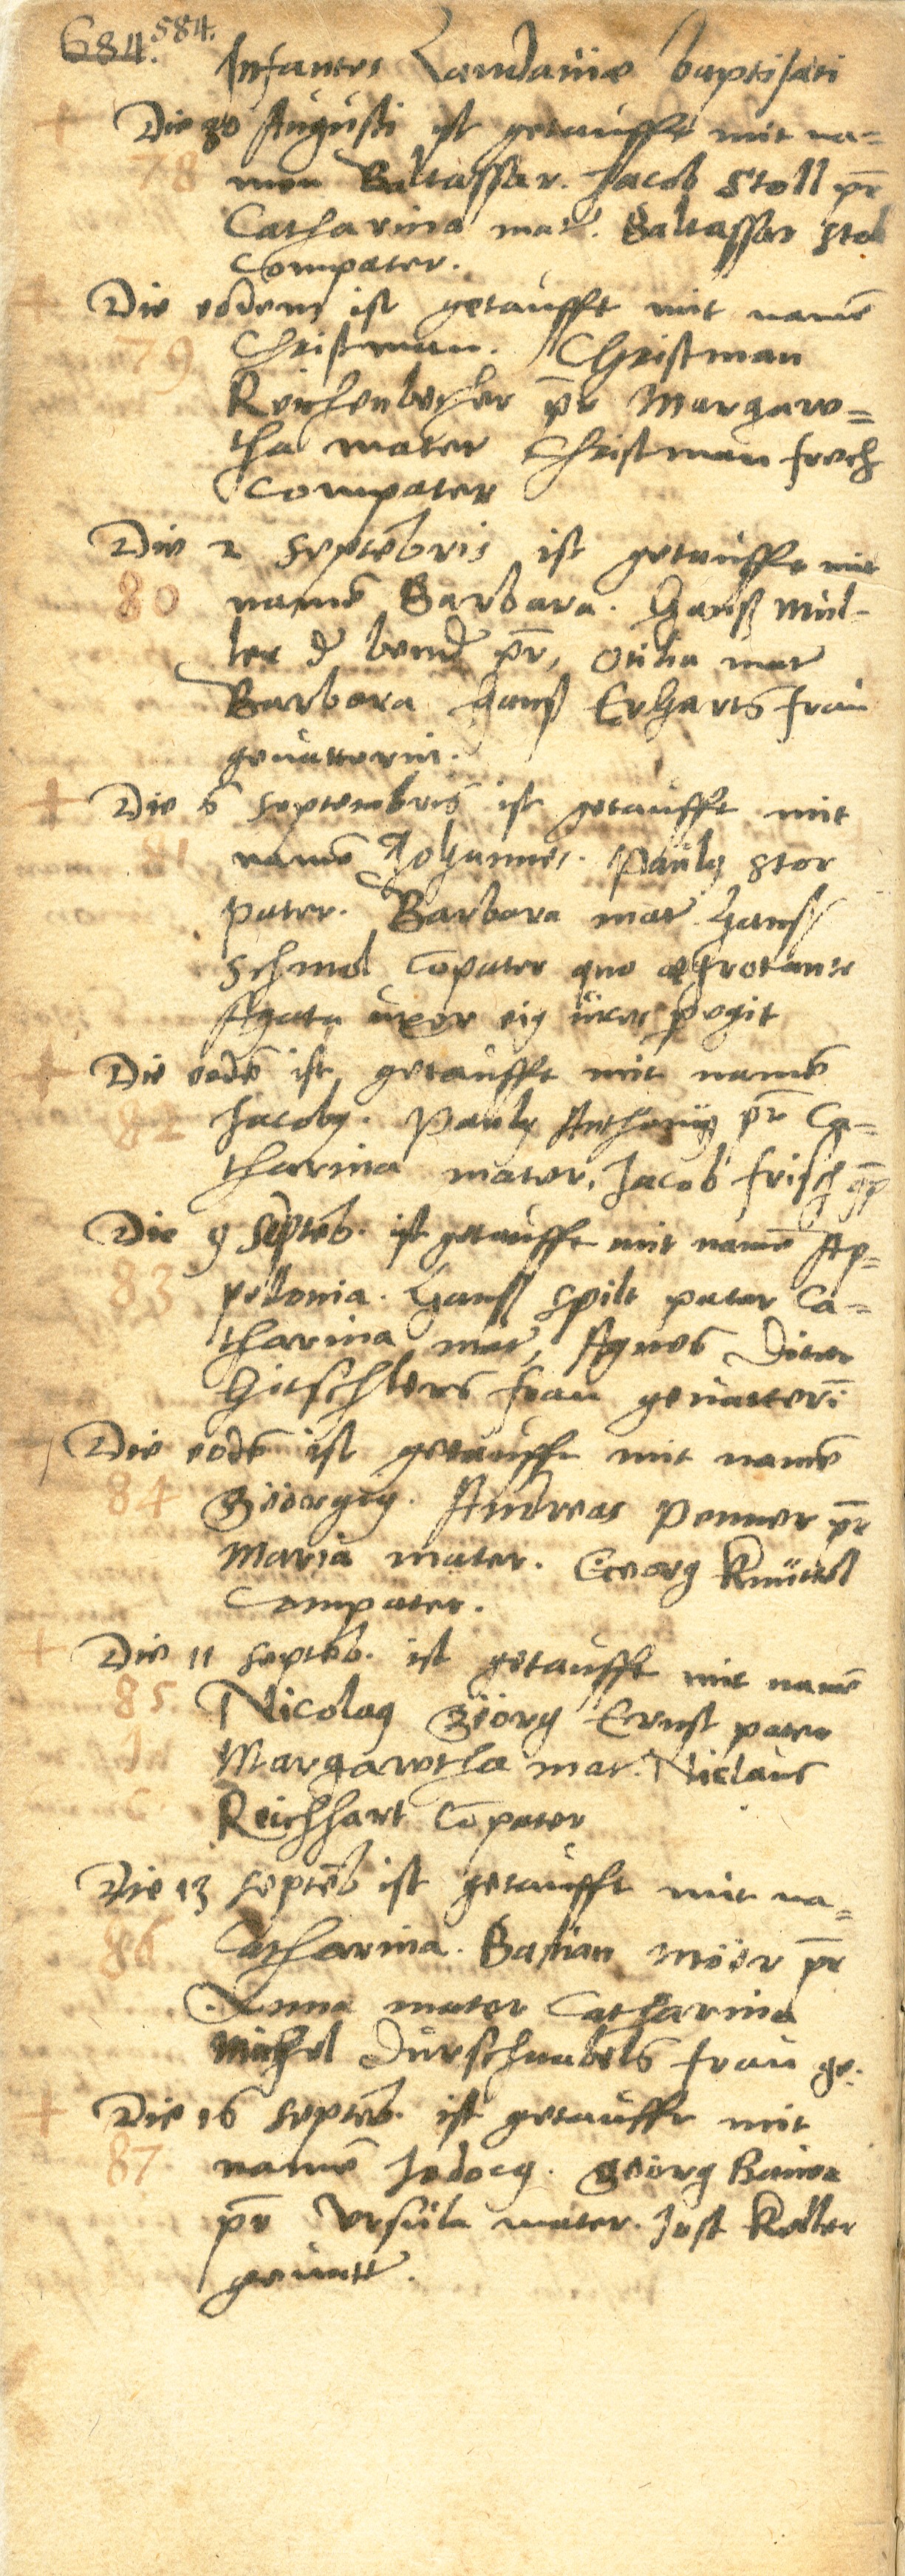 684. 584.
Infantes Landauiæ baptisati
Die 30 Augusti ist getaufft mit na=
78 men Baltassar. Jacob Stoll pr̄
Catharina mat. Baltassar Stol
Compater.
Die eodem ist getaufft mit namē
79 Christman. Christman
Reichenbecher pr̄ Margare=
tha mater Christman frech
Compater
Die 2 Septēbris ist getaufft mit
80 namē Barbara. Hanß Mül-
ler d bend pr̄, Otilia mat
Barbara Hanß Erharts frau
geuatterin.
Die 6 Septembris ist getaufft mit
81 namē Johannes. Paulg Stor
pater. Barbara mat Hanß
Schmol Cōpater quo ægrotante
Agata uxor eig uices pegit
Die eodē ist getaufft mit namē
82 Jacobg. Paulg Anthonig pr̄ Ca=
tharina mater, Jacob frisch gf
Die 9 Septēb. ist getaufft mit namē Ap=
83 pellonia. Hanß Spilt pater Ca=
tharina mat, Agnes Diter
Hitschlers frau geuatterī
Die eodē ist getaufft mit namē
84 Geörgig. Andreas Penner pr̄
Maria mater. Georg Knüttel
Compater.
Die 11 Septēb. ist getaufft mit namē
85 Nicolag Geörg Ernst pater
Margaretha mat. Niclaus
Reichhart Cōpater
Die 13 Septēb ist getaufft mit na=
86 Catharina. Bastian Möer pr̄
Anna mater Catharina
Michel Dürschnabels frau ge.
Die 16 Septēb. ist getaufft mit
87 namē Jodocg. Georg Baier
pr̄ Vrsula mater. Jost Keller
geuatt.